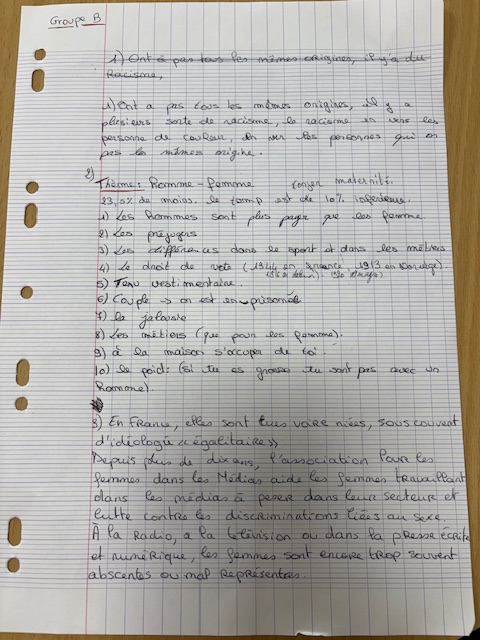 Groupe B
1) Ont à pas tous les mêmes origines, il y'a du
Racisme,
1) Ont a pas tous les mêmes origines, il y a
plusieurs sorte de racisme, le racisme en vers les
personne de couleur, en ver les personnes qui on
pas les mêmes origine.
2)
Thème: homme-femme conger maternité.
23,5% de moins. le temp est de 10% inférieure.
1) Les hommes sont plus payer que les femme
2) Les préjugers
3) Les différences dans le sport et dans les métiers
4) Le droit de vote (1944 en France, 1913 en Norvège).
5) Tenu vestimentaire.
6) Couple → on est en prisonée
7) la jalousie
8) Les métiers (que pour les femme).
9) à la maison s'occuper de toi.
10) le poid: (si tu es grosse tu sont pas avec un
homme).
3) En France, elles sont tues voire niées, sous couvent
d'idéologie « égalitaire »
Depuis plus de dix ans, l'association Pour les
femmes dans les Médias aide les femmes travaillant
dans les médias à peser dans leur secteur et
lutte contre les discriminations liées au sexe.
À la Radio, a la télévision ou dans la presse écrite
et numérique, les femmes sont encore trop souvent
abscentes ou mal représentées.